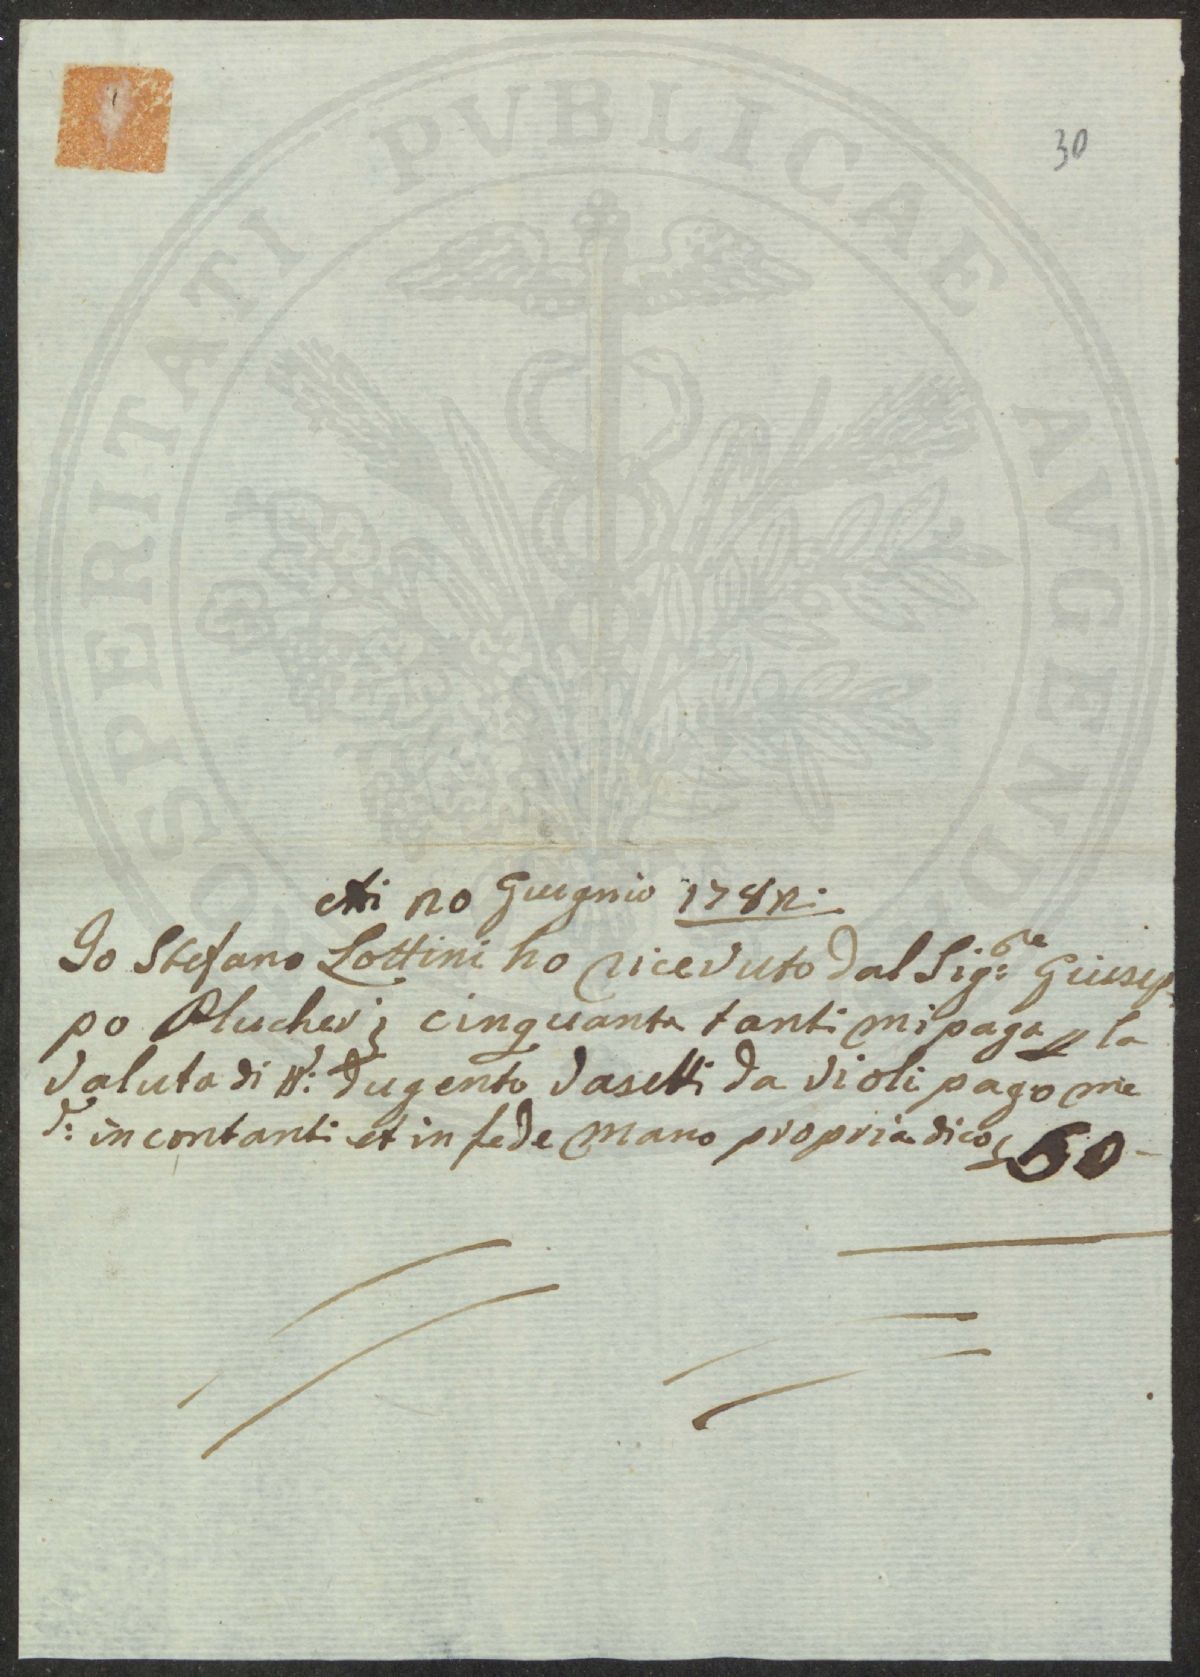 30
PROSPERITATI PUBLICAE AVGENDAE
Adi 20 Giugnio 1782:
Io Stefano Lottini ho riceuuto dal Sig:re Giusep
po Plucher £ cinquanta tanti mi paga p la
valuta di N: dugento Vasetti da violi pago me
d: in contanti et in fede Mano propria dico £ 50 -